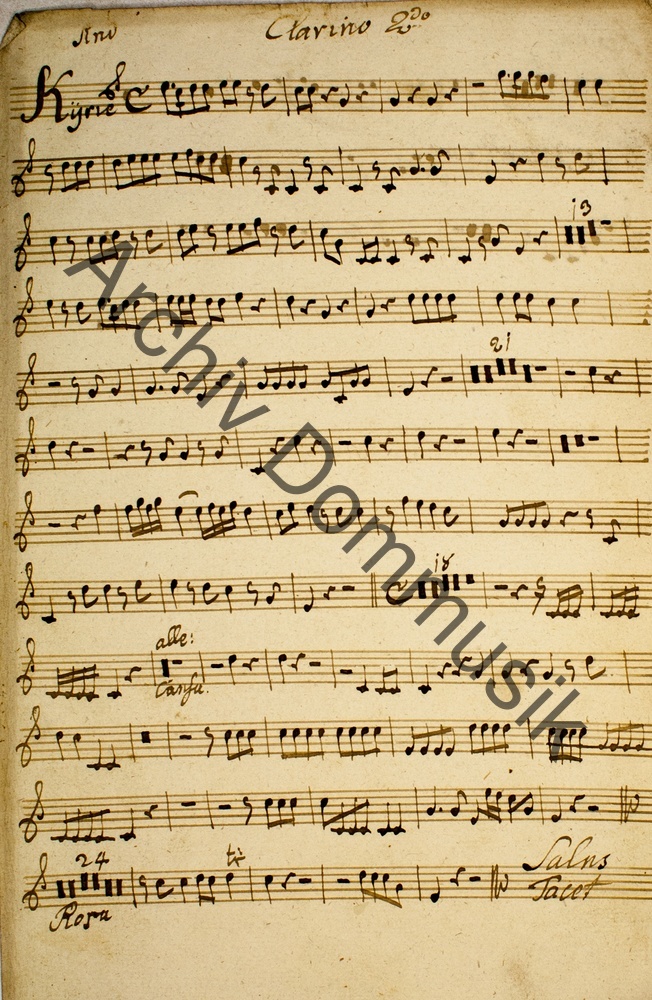 Clarino 2do
Kÿrie
13
21
18
alle:
24
tr
Rosa
Salus
Tacet
Archiv Dommusik